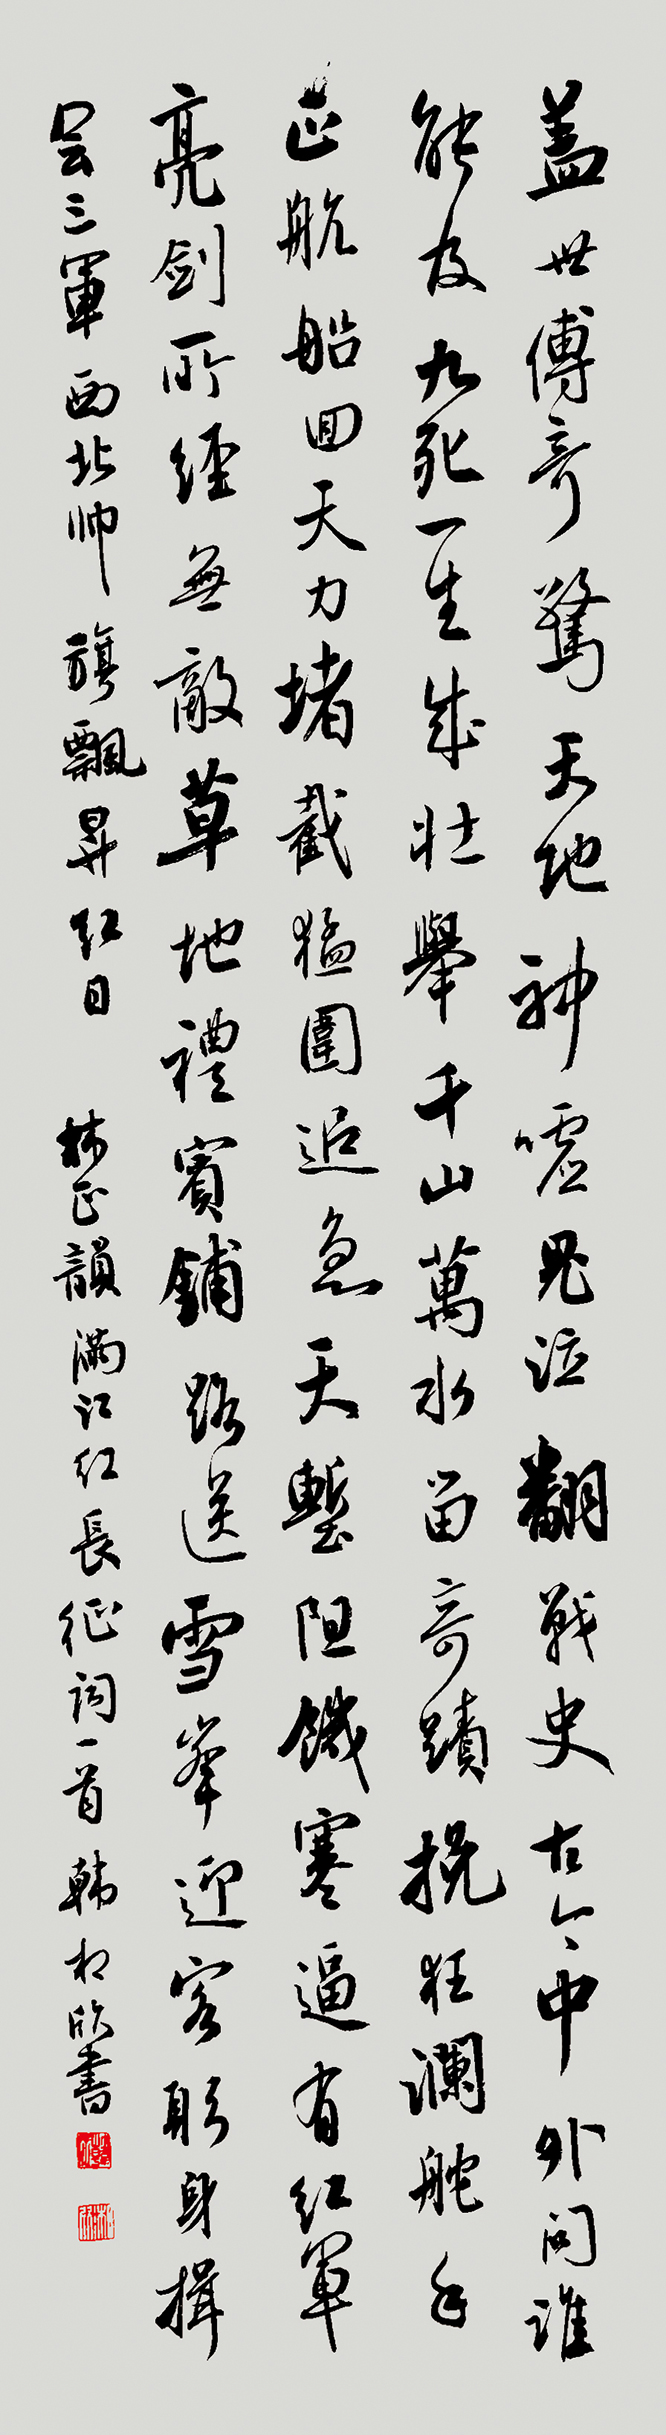 蓋世傳奇驚天地神嘘鬼泣翻戰史古今中外問誰
能及九死一生成壯舉千山萬水留奇蹟挽狂瀾舵手
正航船回天力堵截猛圍追急天塹阻饑寒逼有紅軍
亮劍所經無敵草地禮賓鋪路送雪峯迎客躬身揖
会三軍西北帅旗飄昇红日 林正韻滿江红長征词一首韩相欣書